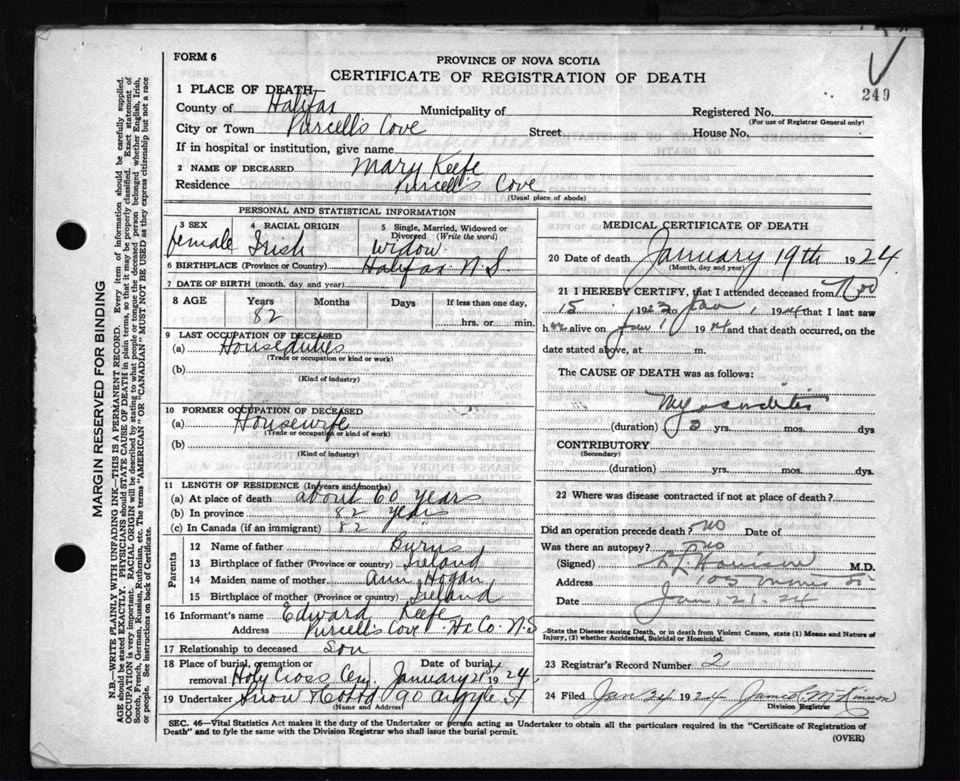 FORM 6
PROVINCE OF NOVA SCOTIA
CERTIFICATE OF REGISTRATION OF DEATH
249
1 PLACE OF DEATH—
County of Halifax Municipality of Registered No.
(For use of Registrar General only)
City or Town Purcell's Cove Street House No.
If in hospital or institution, give name
2 NAME OF DECEASED Mary Keefe
Residence Purcell's Cove
(Usual place of abode)
PERSONAL AND STATISTICAL INFORMATION
3 SEX 4 RACIAL ORIGIN 5 Single, Married, Widowed or Divorced (Write the word)
female Irish Widow
6 BIRTHPLACE (Province or Country) Halifax N.S.
7 DATE OF BIRTH (month, day, and year)
8 AGE Years Months Days If less than one day,
82 hrs. or min.
9 LAST OCCUPATION OF DECEASED
(a) Houseduties
(Trade or occupation or kind or work)
(b)
(Kind of industry)
10 FORMER OCCUPATION OF DECEASED
(a) Housewife
(Trade or occupation or kind of work)
(b)
(Kind of industry)
11 LENGTH OF RESIDENCE (In years and months)
(a) At place of death about 60 years
(b) In province 82 years
(c) In Canada (if an immigrant) 82 "
Parents
12 Name of father Burns
13 Birthplace of father (Province or country) Ireland
14 Maiden name of mother Ann Hogan
15 Birthplace of mother (Province or country) Ireland
16 Informant's name Edward Keefe
Address Purcell's Cove Hx Co. N.S
17 Relationship to deceased Son
18 Place of burial, cremation or removal Holy Cross Cem. Date of burial January 21st 1924
19 Undertaker Snow & Co Ltd 90 Argyle St
(Name and Address)
MEDICAL CERTIFICATE OF DEATH
20 Date of death January 19th 1924
(Month, day and year)
21 I HEREBY CERTIFY, that I attended deceased from Nov
15 1923 to Jan 1, 1924 that I last saw
her alive on Jan 1 1924 and that death occurred, on the
date stated above, at m.
The CAUSE OF DEATH was as follows:
Myocarditis
(duration) 3 yrs. mos. dys
CONTRIBUTORY
(Secondary)
(duration) yrs. mos. dys.
22 Where was disease contracted if not at place of death?
Did an operation precede death? no Date of
Was there an autopsy? no
(Signed) M.D.
Address 105 Morris St
Date Jan. 21. 24
State the Disease causing Death, or in death from Violent Causes, state (1) Means and Nature of Injury, (2) whether Accidental, Suicidal or Homicidal.
23 Registrar's Record Number 2
24 Filed Jan 24 1924 James
Division Registrar
SEC. 46—Vital Statistics Act makes it the duty of the Undertaker or person acting as Undertaker to obtain all the particulars required in the "Certificate of Registration of
Death" and to fyle the same with the Division Registrar who shall issue the burial permit.
(OVER)
MARGIN RESERVED FOR BINDING
N.B.—WRITE PLAINLY WITH UNFADING INK—THIS IS A PERMANENT RECORD. Every item of information should be carefully supplied.
AGE should be stated EXACTLY. PHYSICIANS should STATE CAUSE OF DEATH in plain terms, so that it may be properly classified. Exact statement of
OCCUPATION is very important. RACIAL ORIGIN will be described by stating to what people or tongue the deceased person belonged whether English, Irish,
Scotch, French, German, Russian, Ruthenian, etc. The terms "AMERICAN" OR "CANADIAN" MUST NOT BE USED as they express citizenship but not a race
or people. See instructions on back of Certificate.